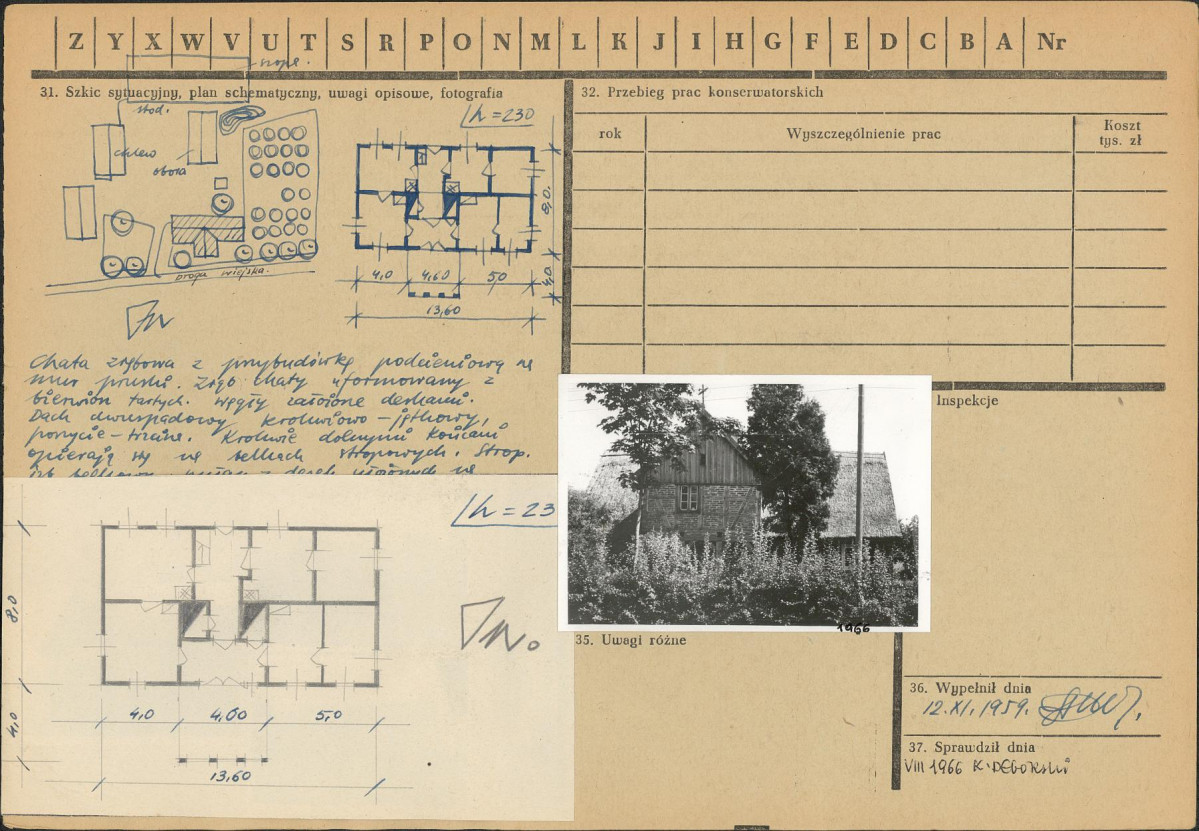 Z Y X W V U T S R P O N M L K J I H G F E D C B A Nr
31. Szkic sytuacyjny, plan schematyczny, uwagi opisowe, fotografia
szopa.
stod.
chlew
obora
droga wiejska.
h = 230
8,0.
4,0
4,0 4,60 5,0
13,60
Chata zrębowa z przybudówką podcieniową na
mur pruski. Zrąb chaty uformowany z
bierwion tartych. Węgły założone deskami.
Dach dwuspadowy krokwiowo-jętkowy,
poszycie-trzcina. Krokwie dolnymi końcami
opierają się na belkach stropowych. Strop.
h = 23
8,0
4,0
4,0 4,60 5,0
13,60
32. Przebieg prac konserwatorskich
rok Wyszczególnienie prac Koszt
tys. zł
Inspekcje
1966
35. Uwagi różne
36. Wypełnił dnia
12.XI.1959.
37. Sprawdził dnia
VIII 1966 K. Dęborski